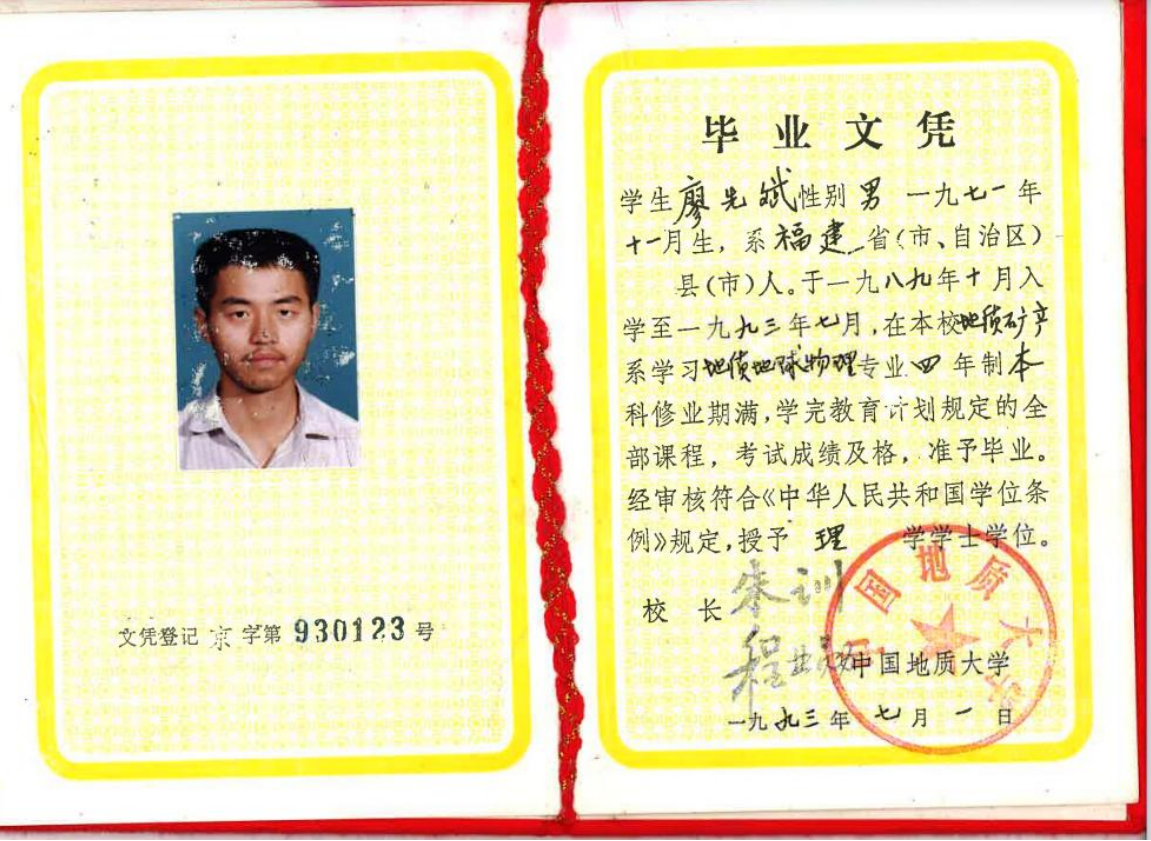 文凭登记 京 字第 930123 号
毕业文凭
学生廖先斌性别 男 一九七一年
十一月生，系福建 省(市、自治区)
县(市)人。于一九八九年十月入
学至一九九三年七月，在本校地质矿产
系学习地质地球物理专业 四 年制本
科修业期满，学完教育计划规定的全
部课程，考试成绩及格，准予毕业。
经审核符合《中华人民共和国学位条
例》规定，授予 理 学学士学位。
校 长 朱训
程业勋
中国地质大学
中国地质大学
一九九三年 七月 一 日